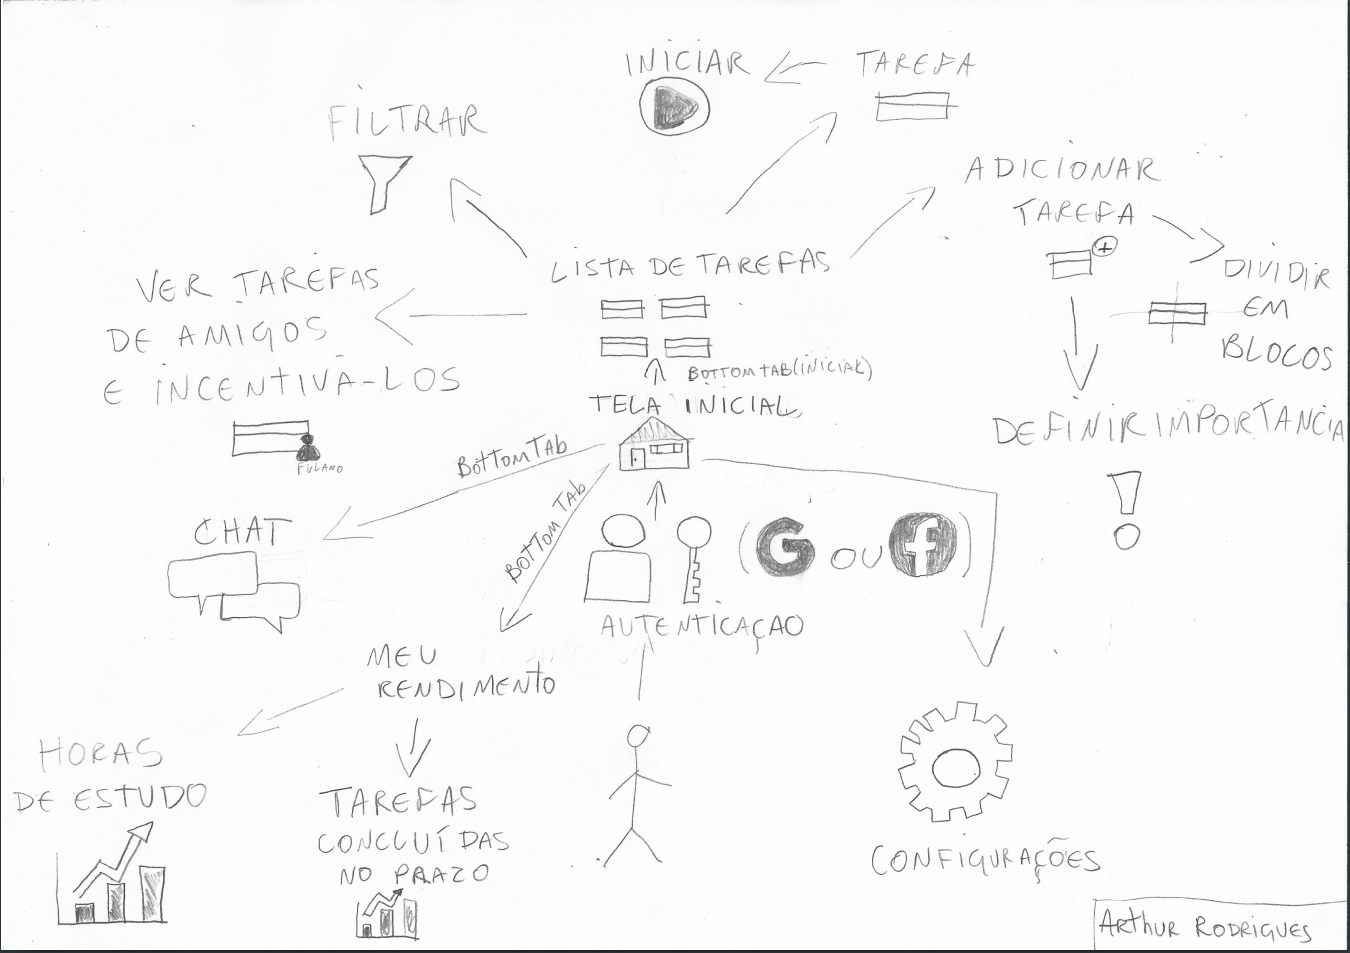 INICIAR
TAREFA
FILTRAR
ADICIONAR
TAREFA
DIVIDIR
EM
BLOCOS
LISTA DE TAREFAS
VER TAREFAS
DE AMIGOS
E INCENTIVÁ-LOS
FULANO
BOTTOMTAB(INICIAL)
TELA INICIAL
DEFINIR IMPORTANCIA
!
BOTTOM TAB
BOTTOM TAB
CHAT
(G OU f)
AUTENTICAÇAO
MEU
RENDIMENTO
HORAS
DE ESTUDO
TAREFAS
CONCLUÍDAS
NO PRAZO
CONFIGURAÇÕES
ARTHUR RODRIGUES